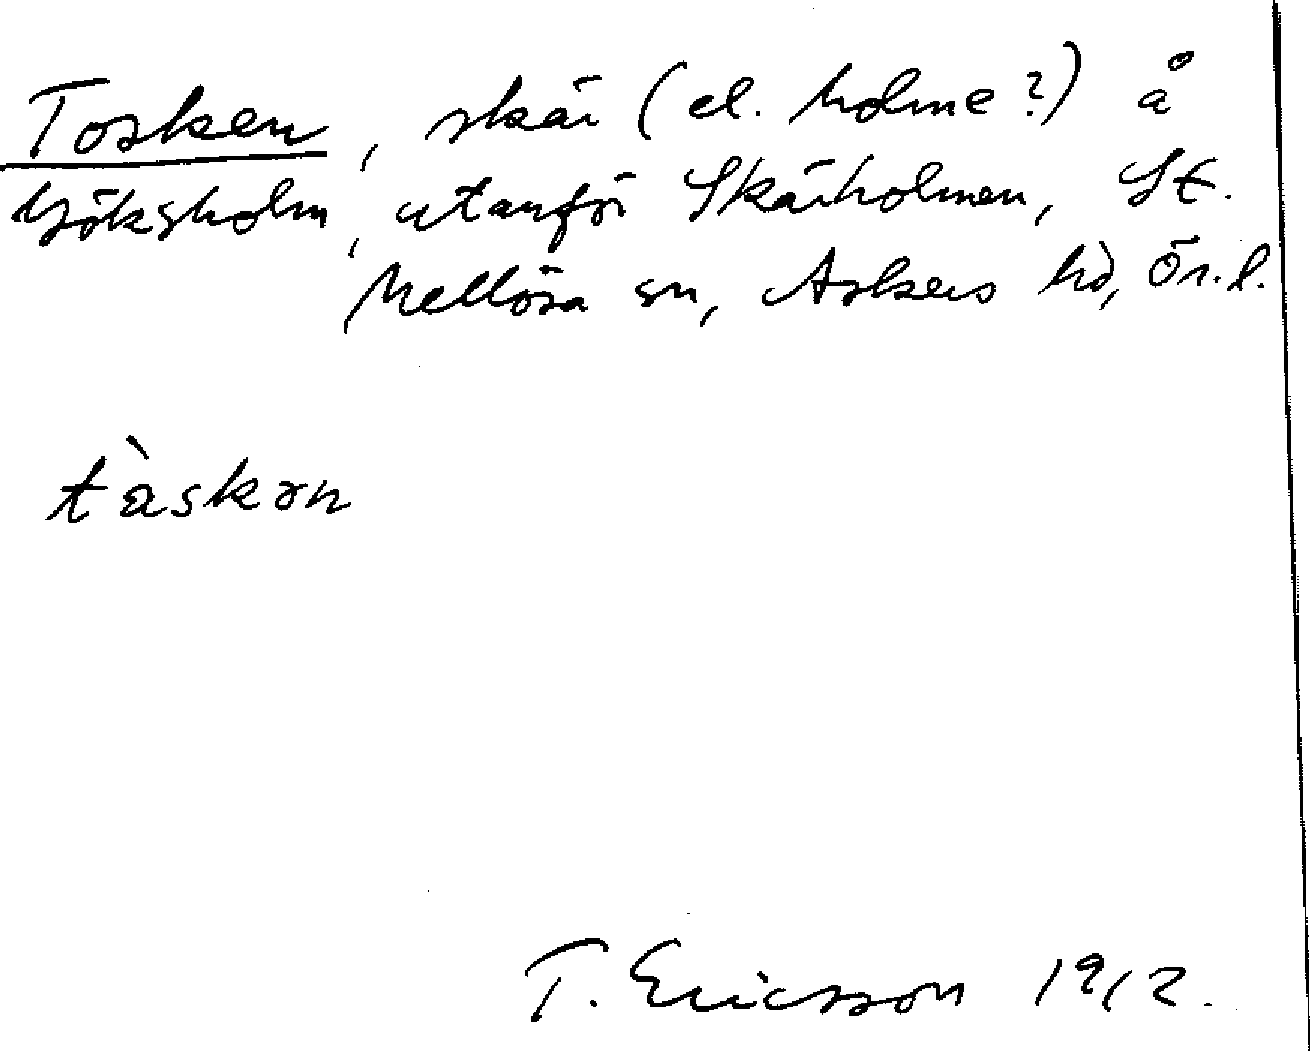 Tosken, skär (el. holme?) å
Göksholm, utanför Skärholmen, St.
Mellösa sn, Askers hd, Ör. l.
tàskən
T. Ericsson 1912.